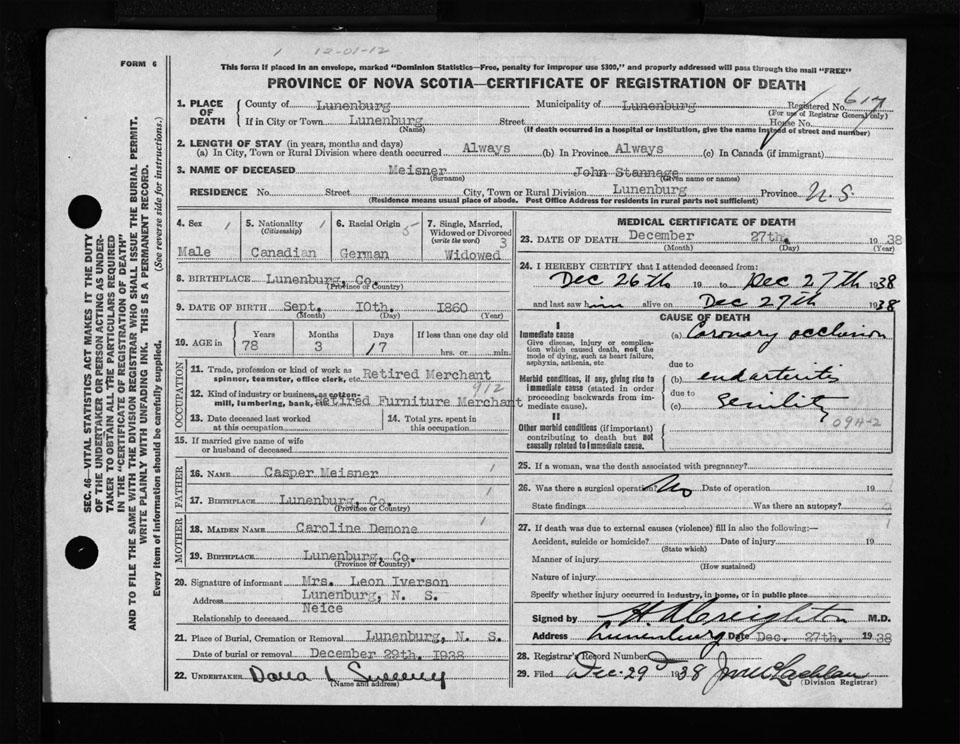 1 12-01-12
FORM 6
This form if placed in an envelope, marked "Dominion Statistics—Free, penalty for improper use $300," and properly addressed will pass through the mail "FREE"
PROVINCE OF NOVA SCOTIA—CERTIFICATE OF REGISTRATION OF DEATH
1. PLACE OF DEATH { County of Lunenburg Municipality of Lunenburg Registered No. 617
(For use of Registrar General only)
If in City or Town Lunenburg Street House No.
(Name) (If death occurred in a hospital or institution, give the name instead of street and number)
2. LENGTH OF STAY (in years, months and days)
(a) In City, Town or Rural Division where death occurred Always (b) In Province Always (c) In Canada (if immigrant)
3. NAME OF DECEASED Meisner John Stannage
(Surname) (Given name or names)
RESIDENCE No. Street City, Town or Rural Division Lunenburg Province N.S.
(Residence means usual place of abode. Post Office Address for residents in rural parts not sufficient)
4. Sex 1 5. Nationality 1 6. Racial Origin 5 7. Single, Married, Widowed or Divorced
(Citizenship) (write the word) 3
Male Canadian German Widowed
8. BIRTHPLACE Lunenburg Co.
(Province or Country)
9. DATE OF BIRTH Sept. 10th. 1860
(Month) (Day) (Year)
10. AGE in { Years Months Days If less than one day old
78 3 17 hrs. or min.
OCCUPATION
11. Trade, profession or kind of work as spinner, teamster, office clerk, etc. Retired Merchant
912
12. Kind of industry or business, as cotton-mill, lumbering, bank, Retired Furniture Merchant
13. Date deceased last worked at this occupation
14. Total yrs. spent in this occupation
15. If married give name of wife or husband of deceased
FATHER
16. NAME Casper Meisner 1
17. BIRTHPLACE Lunenburg Co. 1
(Province or Country)
MOTHER
18. MAIDEN NAME Caroline Demone 1
19. BIRTHPLACE Lunenburg, Co.
(Province or Country)
20. Signature of informant Mrs. Leon Iverson
Address Lunenburg, N. S.
Relationship to deceased Neice
21. Place of Burial, Cremation or Removal Lunenburg, N. S.
Date of burial or removal December 29th. 1938
22. UNDERTAKER Dana L Sweeny
(Name and address)
MEDICAL CERTIFICATE OF DEATH
23. DATE OF DEATH December 27th. 1938
(Month) (Day) (Year)
24. I HEREBY CERTIFY that I attended deceased from:
Dec 26th 19 to Dec 27th 1938
and last saw him alive on Dec 27th 1938
CAUSE OF DEATH
I
Immediate cause (a) Coronary occlusion
Give disease, injury or complication which caused death, not the mode of dying, such as heart failure, asphyxia, asthenia, etc
due to
Morbid conditions, if any, giving rise to immediate cause (stated in order proceeding backwards from immediate cause).
(b) endarteritis
due to
(c) Senility
094-2
II
Other morbid conditions (if important) contributing to death but not causally related to immediate cause.
25. If a woman, was the death associated with pregnancy?
26. Was there a surgical operation? No Date of operation 19
State findings Was there an autopsy?
27. If death was due to external causes (violence) fill in also the following:
Accident, suicide or homicide? Date of injury 19
(State which)
Manner of injury
(How sustained)
Nature of injury
Specify whether injury occurred in industry, in home, or in public place
Signed by H A Creighton M.D.
Address Lunenburg Date Dec. 27th. 1938
28. Registrar's Record Number
29. Filed Dec. 29 1938 J McLachlan
(Division Registrar)
SEC. 46—VITAL STATISTICS ACT MAKES IT THE DUTY
OF THE UNDERTAKER OR PERSON ACTING AS UNDER-
TAKER TO OBTAIN ALL THE PARTICULARS REQUIRED
IN THE "CERTIFICATE OF REGISTRATION OF DEATH"
AND TO FILE THE SAME WITH THE DIVISION REGISTRAR WHO SHALL ISSUE THE BURIAL PERMIT.
WRITE PLAINLY WITH UNFADING INK. THIS IS A PERMANENT RECORD.
Every item of information should be carefully supplied. (See reverse side for instructions.)